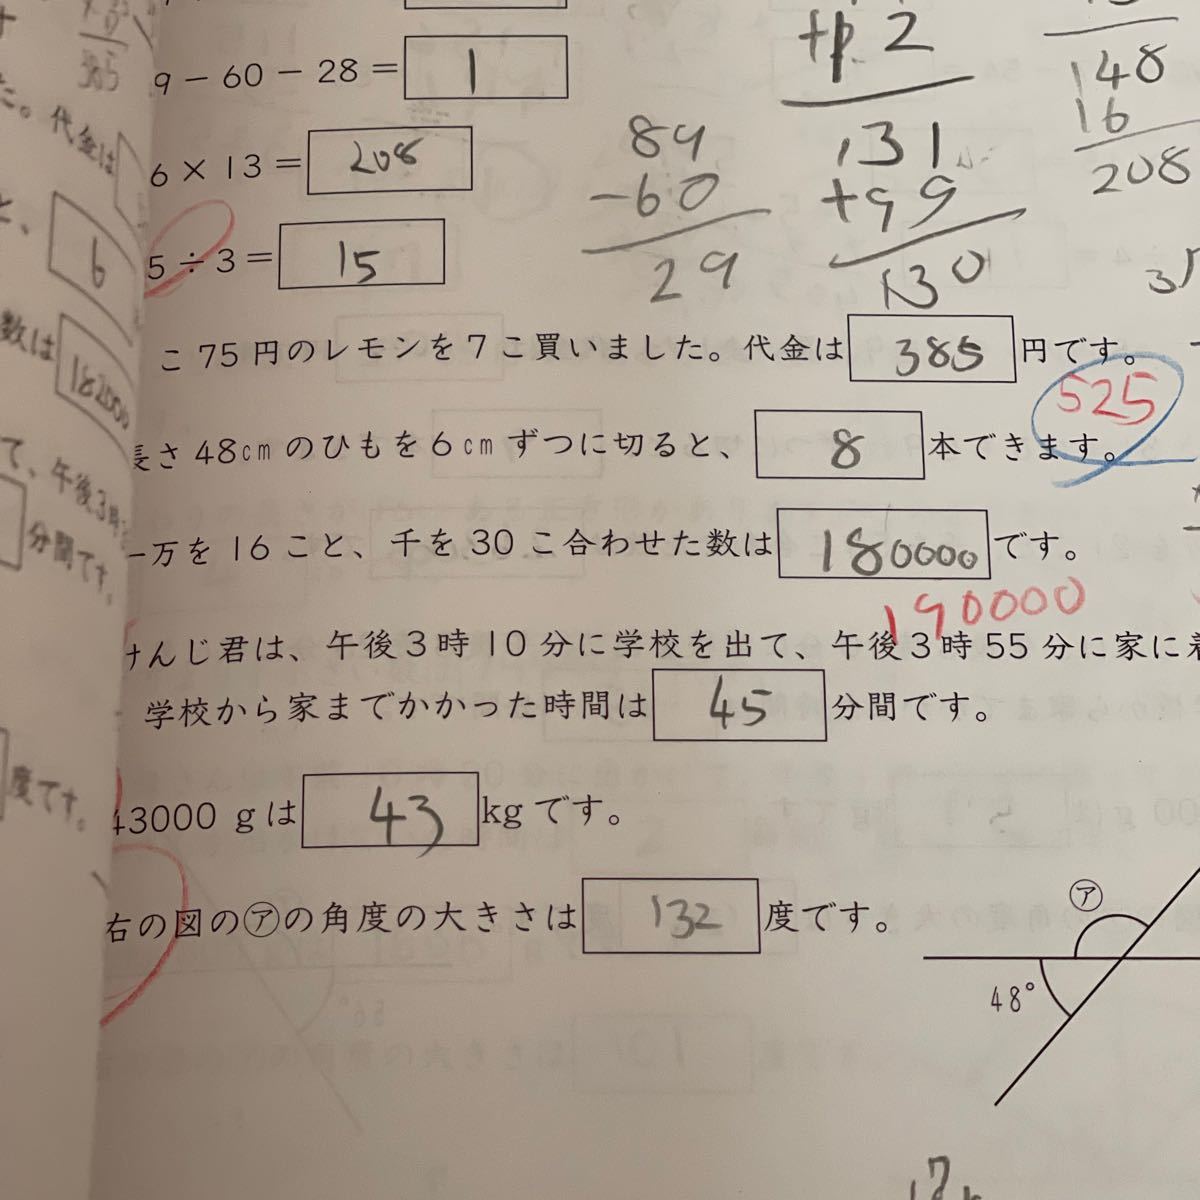 385
た。代金は
6
数は 182000
て、午後3時
分間です。
度です。
9 − 60 − 28 = 1
6 × 13 = 208
5 ÷ 3 = 15
89
−60
29
131
+99
130
148
16
208
こ 75 円のレモンを 7 こ買いました。代金は 385 円です。
525
長さ 48cm のひもを 6cm ずつに切ると、 8 本できます。
一万を 16 こと、千を 30 こ合わせた数は 180000 です。
190000
けんじ君は、午後 3 時 10 分に学校を出て、午後 3 時 55 分に家に着
学校から家までかかった時間は 45 分間です。
43000 g は 43 kg です。
右の図の㋐の角度の大きさは 132 度です。
㋐
48°